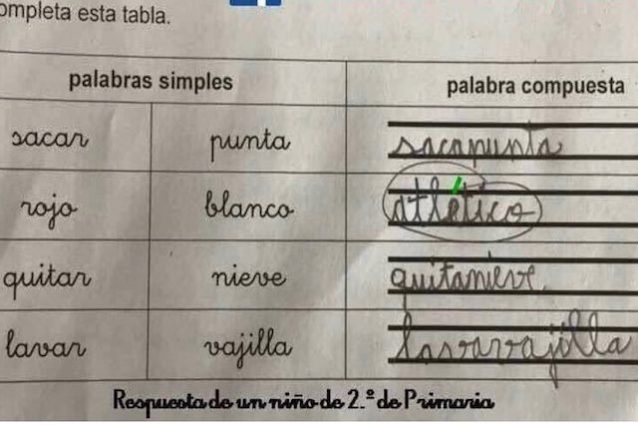 ompleta esta tabla.
palabras simples palabra compuesta
sacar punta sacapunta
rojo blanco atlético
quitar nieve quitanieve
lavar vajilla lavavajilla
Respuesta de un niño de 2.º de Primaria